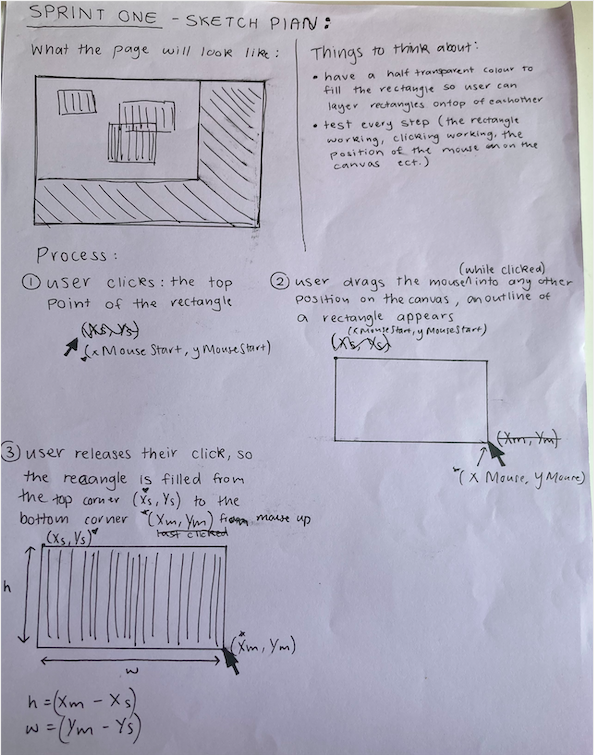 SPRINT ONE - SKETCH PLAN:
What the page will look like:
Things to think about:
• have a half transparent colour to
fill the rectangle so user can
layer rectangles ontop of eachother
• test every step (the rectangle
working, clicking working, the
position of the mouse on the
canvas ect.)
Process:
① user clicks: the top
point of the rectangle
(Xs, Ys)
(xMouseStart, yMouseStart)
② user drags the mouse^into any other
(while clicked)
position on the canvas, an outline of
a rectangle appears
(xMouseStart, yMouseStart)
(Xs, Ys)
(Xm, Ym)
(XMouse, YMouse)
③ user releases their click, so
the rectangle is filled from
the top corner (Xs, Ys) to the
bottom corner (Xm, Ym) from mouse up
last clicked
(Xs, Ys)
h
(Xm, Ym)
w
h = (Xm - Xs)
w = (Ym - Ys)